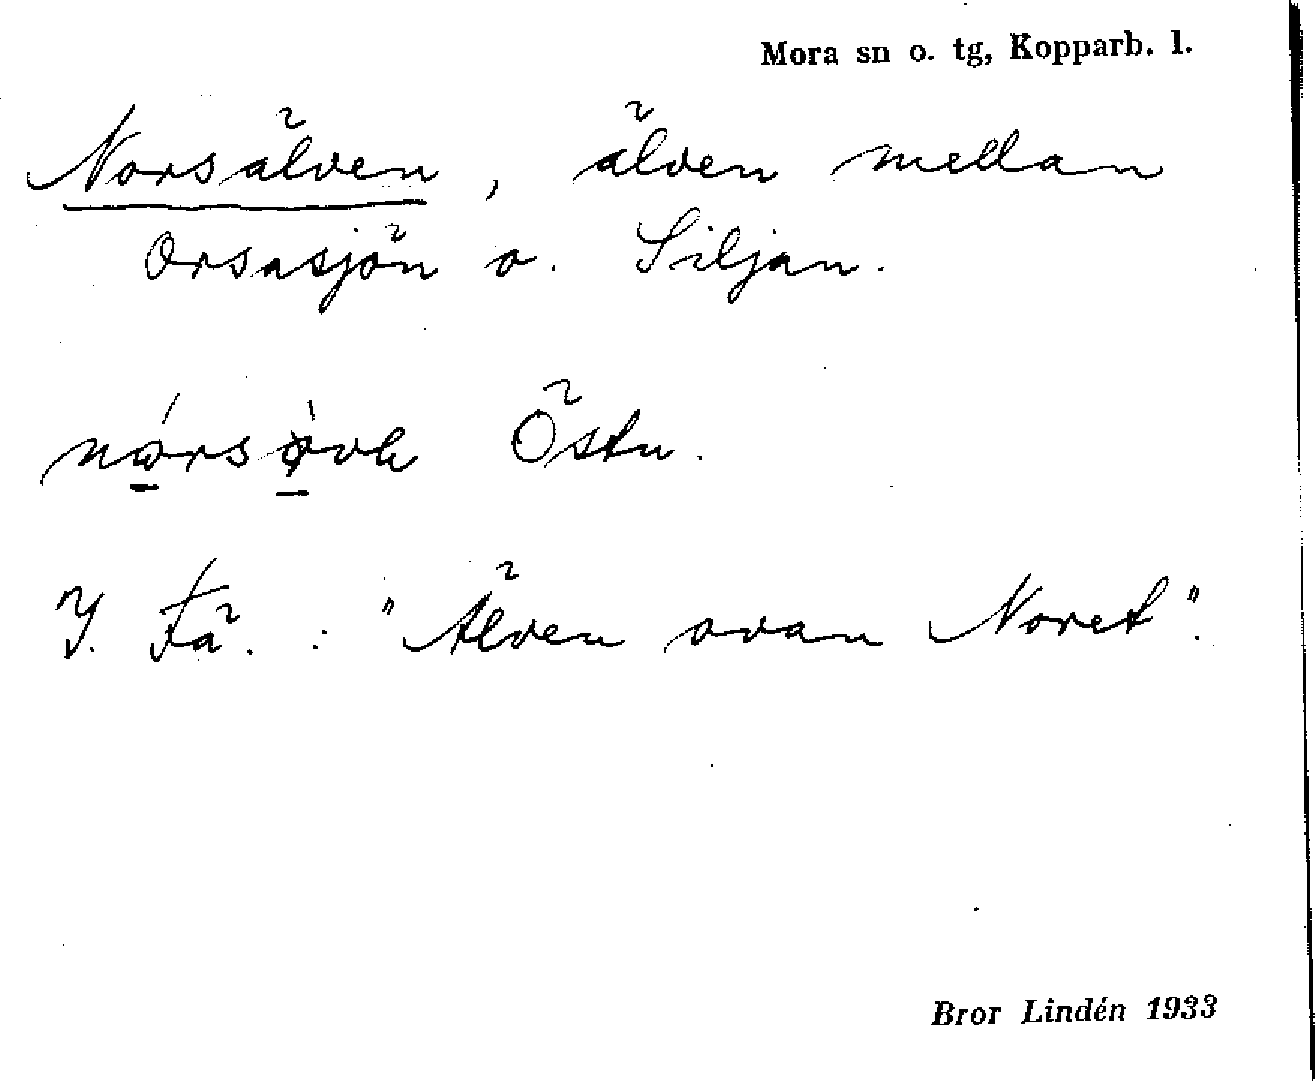 Mora sn o. tg, Kopparb. l.
Norsälven, älven mellan
Orsasjön o. Siljan.
Östn.
"Älven ovan Noret".
Bror Lindén 1933